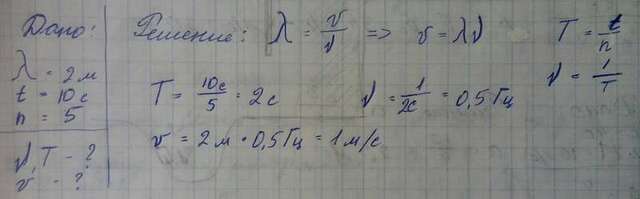 Дано:
λ = 2 м
t = 10 с
n = 5
ν, T - ?
v - ?
Решение: λ = v/ν => v = λν
T = t/n
ν = 1/T
T = 10с/5 = 2 с
ν = 1/2с = 0,5 Гц
v = 2 м · 0,5 Гц = 1 м/с